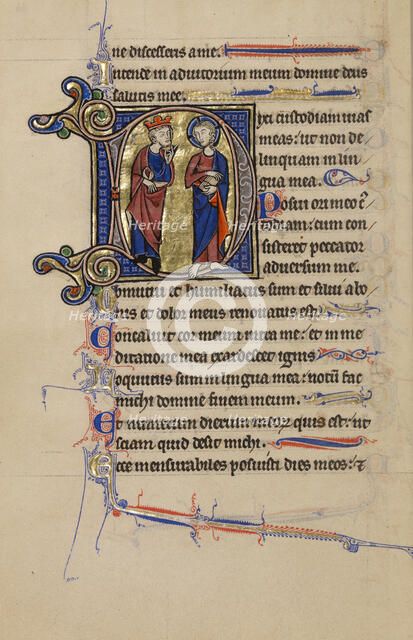 ne discesseris a me.
Intende in adiutorium meum domine deus
salutis mee.
Dixi custodiam uias
meas: ut non de
linquam in lin
gua mea.
Posui ori meo c
todiam: cum con
sisteret peccator
aduersum me.
Obmutui et humiliatus sum et silui a bo
nis et dolor meus renouatus est.
Concaluit cor meum intra me: et in me
ditatione mea exardescet ignis
Locutus sum in lingua mea: notum fac
michi domine finem meum.
Et numerum dierum meorum quis est: ut
sciam quid desit michi.
Ecce mensurabiles posuisti dies meos: et
Heritage
Heritage
Heritage
Heritage
Heritage
Heritage